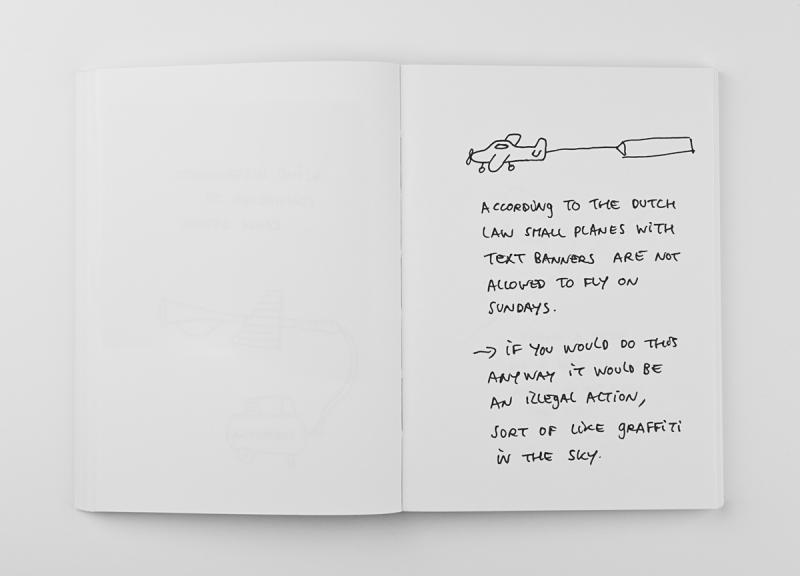 ACCORDING TO THE DUTCH
LAW SMALL PLANES WITH
TEXT BANNERS ARE NOT
ALLOWED TO FLY ON
SUNDAYS.
→ IF YOU WOULD DO THIS
ANYWAY IT WOULD BE
AN ILLEGAL ACTION,
SORT OF LIKE GRAFFITI
IN THE SKY.